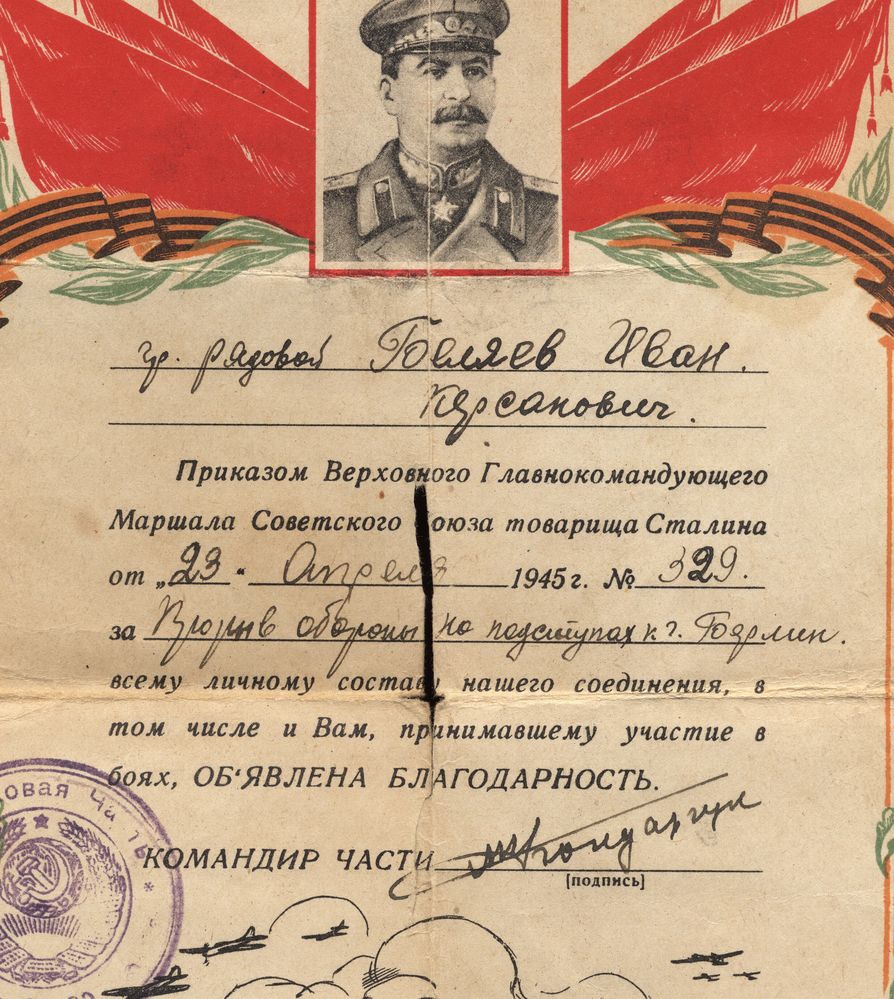 гр. рядовой Беляев Иван
Карсанович.
Приказом Верховного Главнокомандующего
Маршала Советского Союза товарища Сталина
от „23“ Апреля 1945 г. № 329.
за Прорыв обороны на подступах к г. Берлин.
всему личному составу нашего соединения, в
том числе и Вам, принимавшему участие в
боях, ОБ‘ЯВЛЕНА БЛАГОДАРНОСТЬ.
КОМАНДИР ЧАСТИ
[подпись]